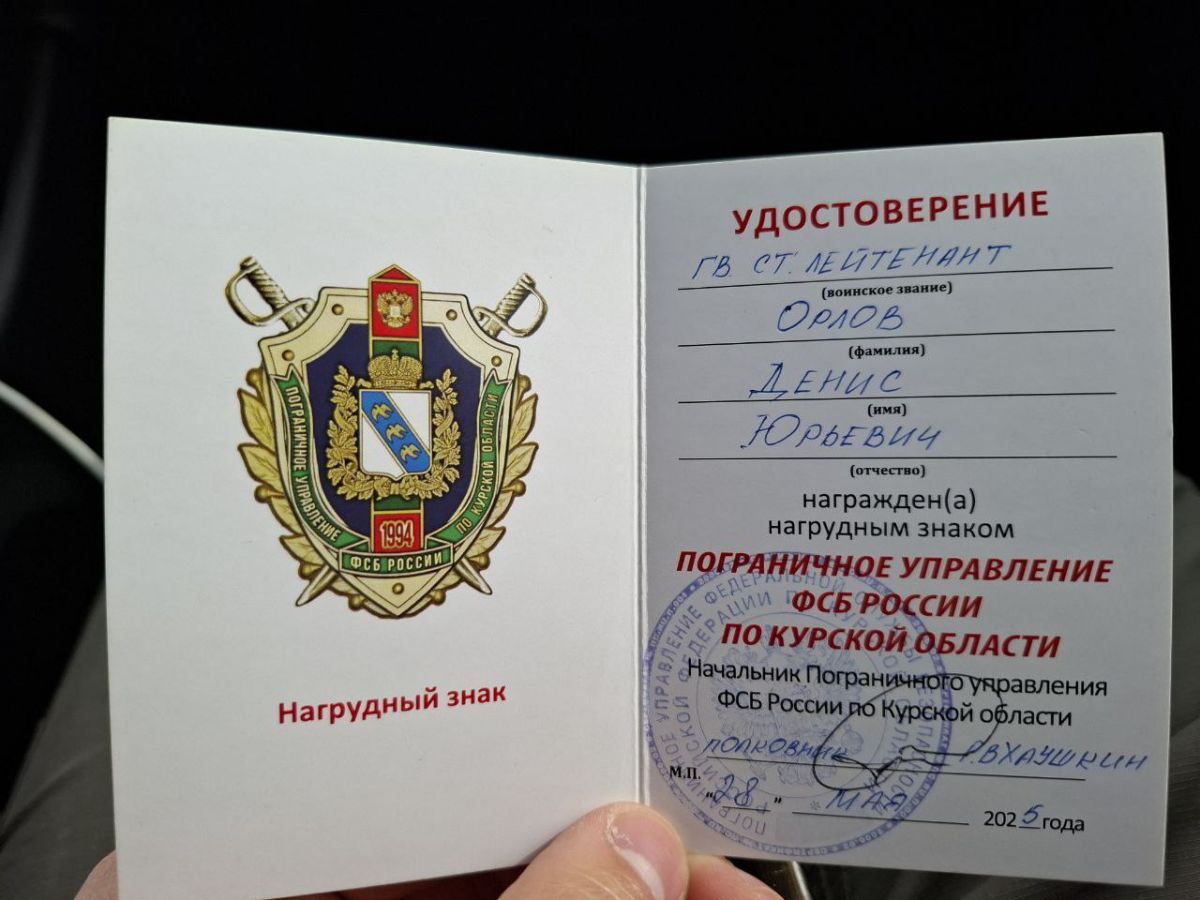 ПОГРАНИЧНОЕ УПРАВЛЕНИЕ
ПО КУРСКОЙ ОБЛАСТИ
1994
ФСБ РОССИИ
Нагрудный знак
УДОСТОВЕРЕНИЕ
ГВ. СТ. ЛЕЙТЕНАНТ
(воинское звание)
ОРЛОВ
(фамилия)
ДЕНИС
(имя)
ЮРЬЕВИЧ
(отчество)
награжден(а)
нагрудным знаком
ПОГРАНИЧНОЕ УПРАВЛЕНИЕ
ФСБ РОССИИ
ПО КУРСКОЙ ОБЛАСТИ
Начальник Пограничного управления
ФСБ России по Курской области
полковник Р.В ХАУШКИН
М.П.
"28" МАЯ 2025 года